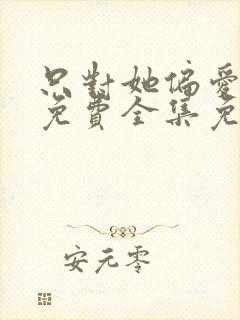 只對她偏愛
免費全集免
安元零